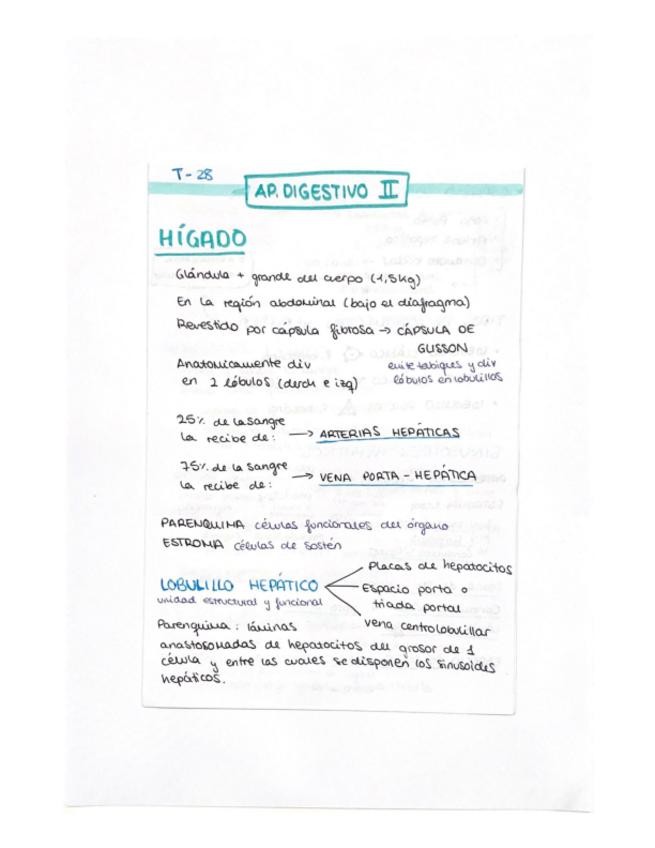 T-28
AP. DIGESTIVO II
HÍGADO
Glándula + grande del cuerpo (1,5kg)
En la región abdominal (bajo el diafragma)
Revestido por cápsula fibrosa → CÁPSULA DE
GLISSON
Anatomicamente div
en 2 lóbulos (derch e izq)
emite tabiques y div
lóbulos en lobulillos
25% de la sangre
la recibe de: → ARTERIAS HEPÁTICAS
75% de la sangre
la recibe de: → VENA PORTA - HEPÁTICA
PARENQUIMA células funcionales del órgano
ESTROMA células de sostén
Placas de hepatocitos
LOBULILLO HEPÁTICO
unidad estructural y funcional
Espacio porta o
triada portal
vena centrolobulillar
Parenquima: láminas
anastosomadas de hepatocitos del grosor de 1
célula y entre las cuales se disponen los sinusoides
hepáticos.